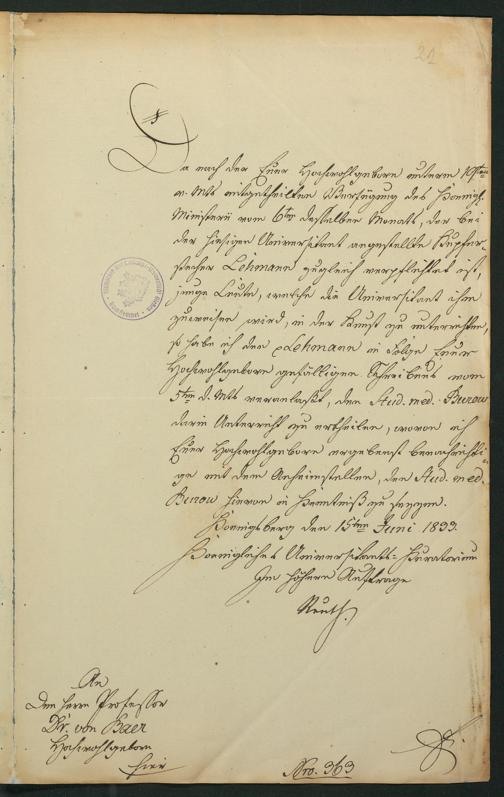 21
Da nach der Euer Hochwohlgeboren unterm 10ten
v. Mts mitgetheilten Verfügung des Koenigl.
Ministerii vom 6ten desselben Monats, der bei
der hiesigen Universitaet angestellte Kupfer-
stecher Lehmann zugleich verpflichtet ist,
junge Leute, welche die Universitaet ihm
zuweisen wird, in der Kunst zu unterrichten,
so habe ich den Lehmann in Folge Euer
Hochwohlgeboren gefälligen Schreibens vom
5ten d. Mts veranlaßt, den Stud. med. Burow
darin Unterricht zu ertheilen, wovon ich
Euer Hochwohlgeboren ergebenst benachrichti-
ge mit dem Anheimstellen, den Stud. med.
Burow hievon in Kenntniß zu setzen.
Koenigsberg den 15ten Juni 1833.
Koenigliches Universitaets-Kuratorium
Im höhern Auftrage
Reusch.
An
den Herrn Professor
Dr. von Baer
Hochwohlgeboren
hier
Nro. 363